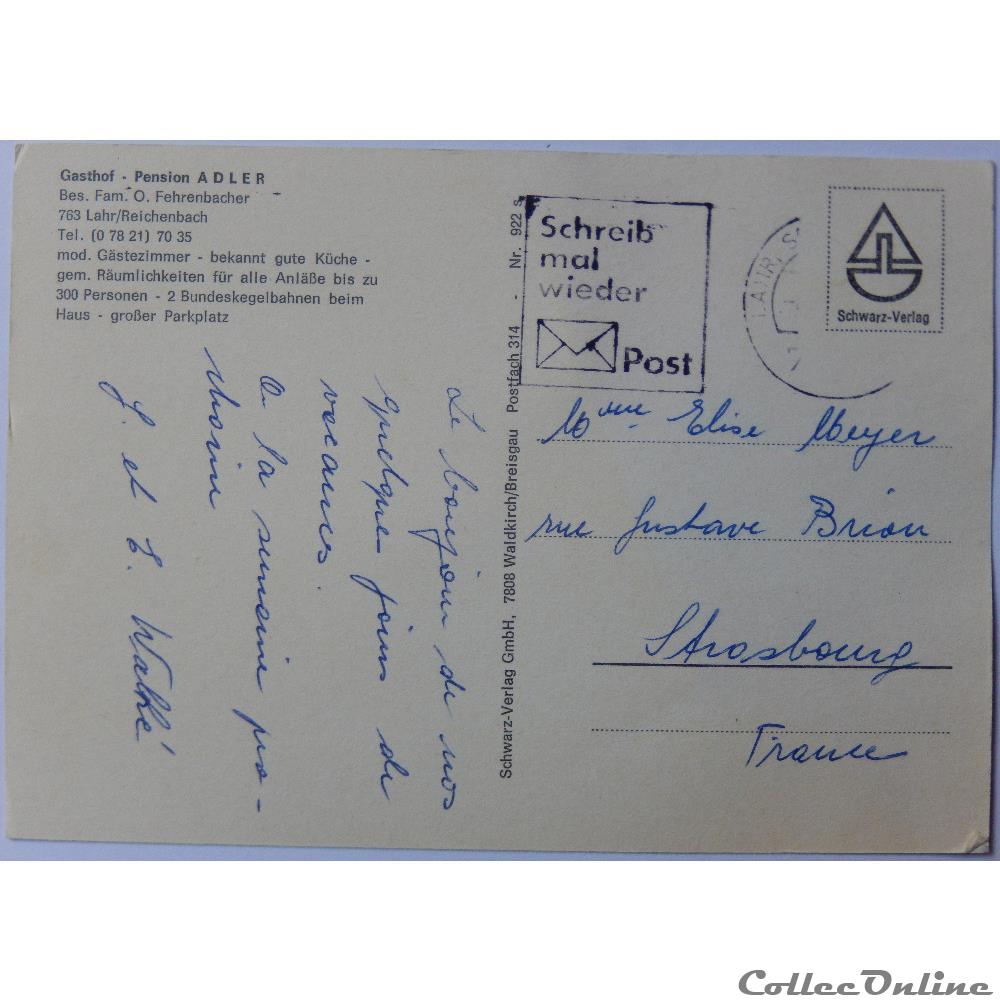 Gasthof - Pension ADLER
Bes. Fam. O. Fehrenbacher
763 Lahr/Reichenbach
Tel. (0 78 21) 70 35
mod. Gästezimmer - bekannt gute Küche -
gem. Räumlichkeiten für alle Anläße bis zu
300 Personen - 2 Bundeskegelbahnen beim
Haus - großer Parkplatz
Le bonjour de nos
quelque jours de
vacances.
A la semaine pro-
chaine
J. et E. Walhé
Schwarz-Verlag GmbH, 7808 Waldkirch/Breisgau Postfach 314 - Nr. 922 s
Schreib
mal
wieder
Post
LAHR, S
Schwarz-Verlag
Mme Elise Meyer
rue Gustave Brion
Strasbourg
France
CollecOnline